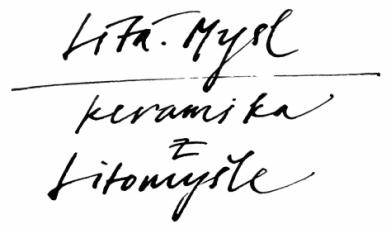 Litá. Mysl
keramika
z
Litomyšle